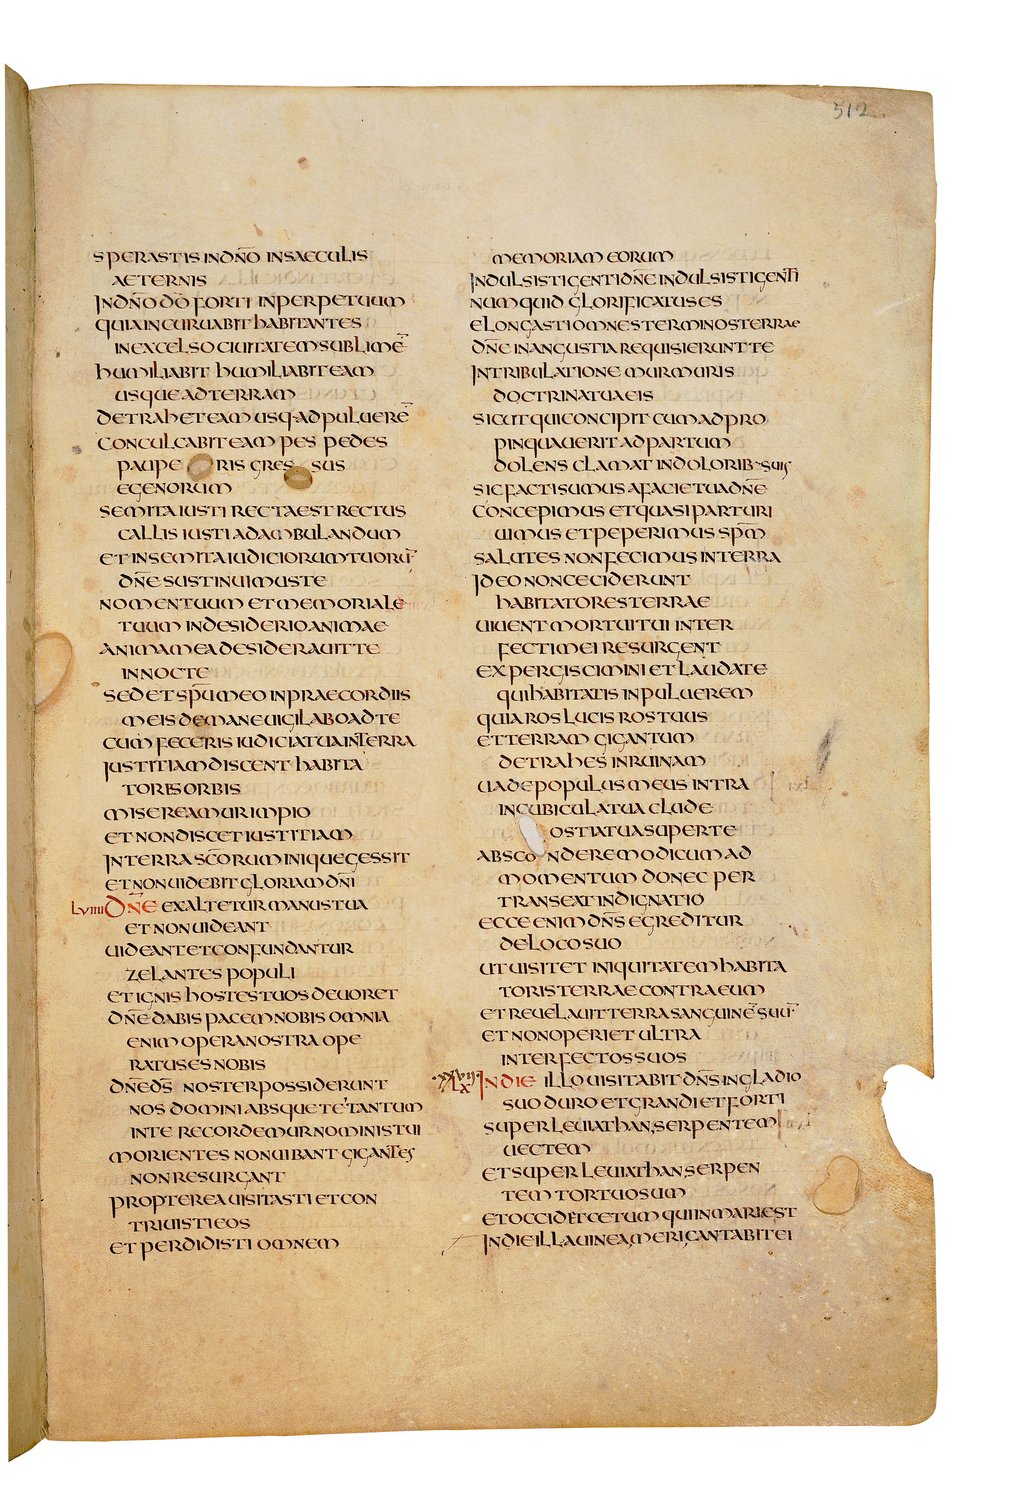 512.
SPERASTIS IN DÑO IN SAECULIS
AETERNIS
IN DÑO DŌ FORTI IN PERPETUUM
QUIA INCURUABIT HABITANTES
IN EXCELSO CIUITATEM SUBLIMĒ
HUMILIABIT HUMILIABIT EAM
USQUE AD TERRAM
DETRAHET EAM USQ· AD PULUERĒ
CONCULCABIT EAM PES PEDES
PAUPERIS GRESSUS
EGENORUM
SEMITA IUSTI RECTA EST RECTUS
CALLIS IUSTI AD AMBULANDUM
ET IN SEMITA IUDICIORUM TUORŪ
DÑE SUSTINUIMUS TE
NOMEN TUUM ET MEMORIALE
TUUM IN DESIDERIO ANIMAE
ANIMA MEA DESIDERAUIT TE
IN NOCTE
SED ET SPŪ MEO IN PRAECORDIIS
MEIS DE MANE UIGILABO AD TE
CUM FECERIS IUDICIA TUA IN TERRA
IUSTITIAM DISCENT HABITA
TORES ORBIS
MISEREAMUR IMPIO
ET NON DISCET IUSTITIAM
IN TERRA SC̄ORUM INIQUE GESSIT
ET NON UIDEBIT GLORIAM DÑI
LVIIII DÑE EXALTETUR MANUS TUA
ET NON UIDEANT
UIDEANT ET CONFUNDANTUR
ZELANTES POPULI
ET IGNIS HOSTES TUOS DEUORET
DÑE DABIS PACEM NOBIS OMNIA
ENIM OPERA NOSTRA OPE
RATUS ES NOBIS
DÑE DS̄ NOSTER POSSIDERUNT
NOS DOMINI ABSQUE TE TANTUM
IN TE RECORDEMUR NOMINIS TUI
MORIENTES NON UIBANT GIGANTES
NON RESURGANT
PROPTEREA UISITASTI ET CON
TRIUISTI EOS
ET PERDIDISTI OMNEM
MEMORIAM EORUM
INDULSISTI GENTI DÑE INDULSISTI GENTI
NUMQUID GLORIFICATUS ES
ELONGASTI OMNES TERMINOS TERRAE
DÑE IN ANGUSTIA REQUISIERUNT TE
IN TRIBULATIONE MURMURIS
DOCTRINA TUA EIS
SICUT QUI CONCIPIT CUM ADPRO
PINQUAUERIT AD PARTUM
DOLENS CLAMAT IN DOLORIB· SUIS
SIC FACTI SUMUS A FACIE TUA DÑE
CONCEPIMUS ET QUASI PARTURI
UIMUS ET PEPERIMUS SPM̄
SALUTES NON FECIMUS IN TERRA
IDEO NON CECIDERUNT
HABITATORES TERRAE
UIUENT MORTUI TUI INTER
FECTI MEI RESURGENT
EXPERGISCIMINI ET LAUDATE
QUI HABITATIS IN PULUEREM
QUIA ROS LUCIS ROS TUUS
ET TERRAM GIGANTUM
DETRAHES IN RUINAM
UADE POPULUS MEUS INTRA
IN CUBICULA TUA CLUDE
OSTIA TUA SUPER TE
ABSCONDERE MODICUM AD
MOMENTUM DONEC PER
TRANSEAT INDIGNATIO
ECCE ENIM DÑS EGREDITUR
DE LOCO SUO
UT UISITET INIQUITATEM HABITA
TORIS TERRAE CONTRA EUM
ET REUELAUIT TERRA SANGUINĒ SUŪ
ET NON OPERIET ULTRA
INTERFECTOS SUOS
LX IN DIE ILLO UISITABIT DÑS IN GLADIO
SUO DURO ET GRANDI ET FORTI
SUPER LEUIATHAN, SERPENTEM
UECTEM
ET SUPER LEUIATHAN, SERPEN
TEM TORTUOSUM
ET OCCIDET CETUM QUI IN MARI EST
IN DIE ILLA UINEA MERI CANTABIT EI